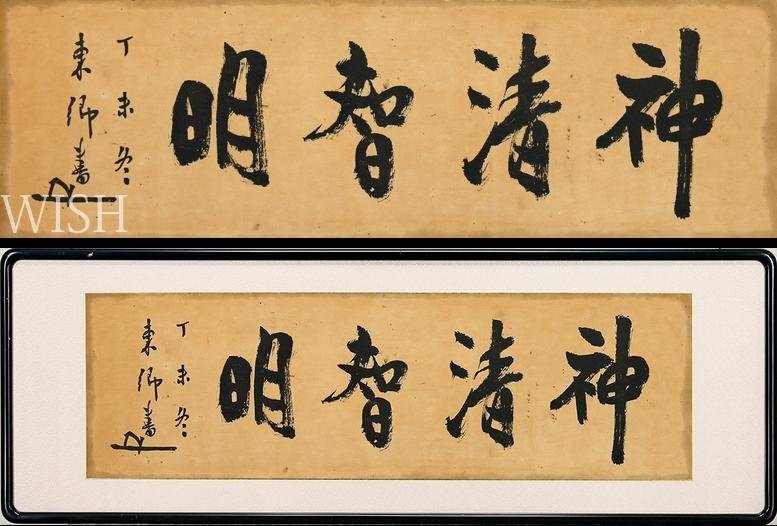 神清智明
丁未冬
東卿書
WISH
神清智明
丁未冬
東卿書